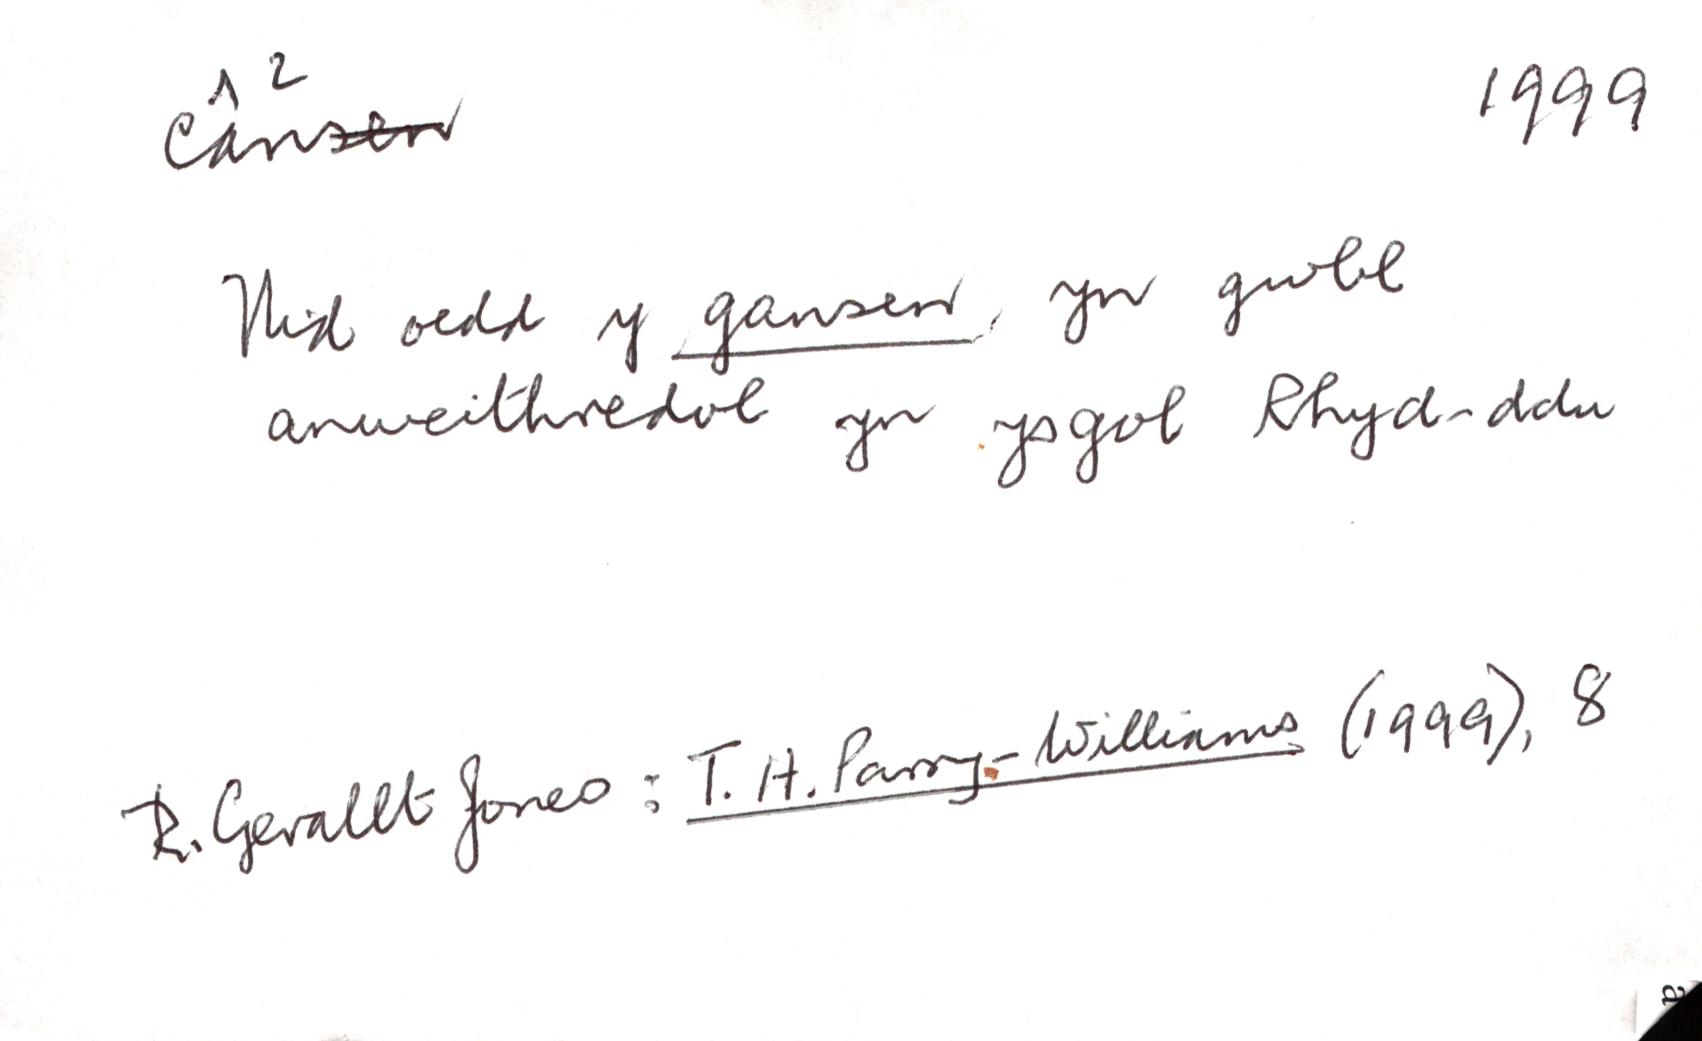 Cân² ~~sen~~ 1999
Nid oedd y gansen, yn gwbl
anweithredol yn ysgol Rhyd-ddu
R. Gerallt Jones : T. H. Parry-Williams (1999), 8
a